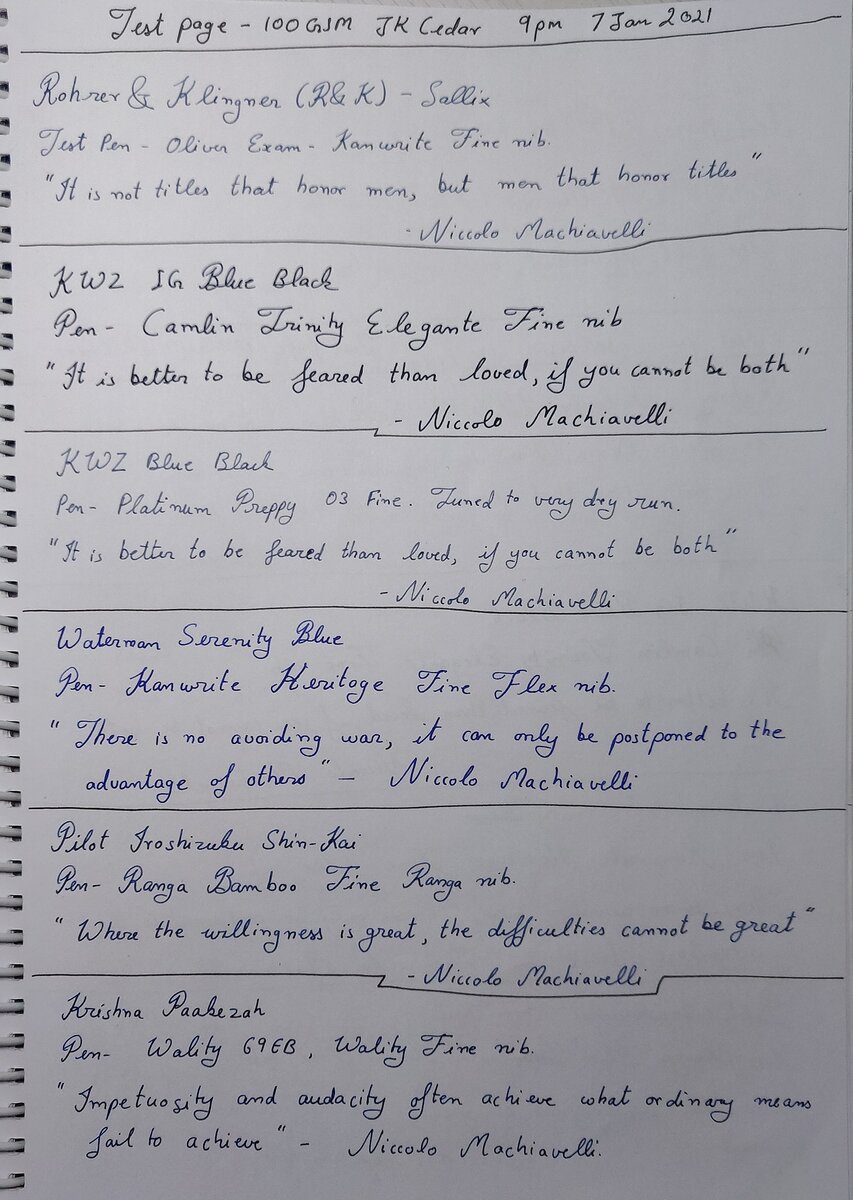 Test page - 100GSM JK Cedar 9pm 7 Jan 2021
Rohrer & Klingner (R&K) - Sallix
Test Pen - Oliver Exam - Kanwrite Fine nib.
"It is not titles that honor men, but men that honor titles"
- Niccolo Machiavelli
KWZ IG Blue Black
Pen- Camlin Trinity Elegante Fine nib
"It is better to be feared than loved, if you cannot be both"
- Niccolo Machiavelli
KWZ Blue Black
Pen- Platinum Preppy 03 Fine. Tuned to very dry run.
"It is better to be feared than loved, if you cannot be both"
- Niccolo Machiavelli
Waterman Serenity Blue
Pen- Kanwrite Heritage Fine Flex nib.
"There is no avoiding war, it can only be postponed to the
advantage of others" - Niccolo Machiavelli
Pilot Iroshizuku Shin-Kai
Pen- Ranga Bamboo Fine Ranga nib.
"Where the willingness is great, the difficulties cannot be great"
- Niccolo Machiavelli
Krishna Paakezah
Pen- Wality 69EB, Wality Fine nib.
"Impetuosity and audacity often achieve what ordinary means
fail to achieve" - Niccolo Machiavelli.